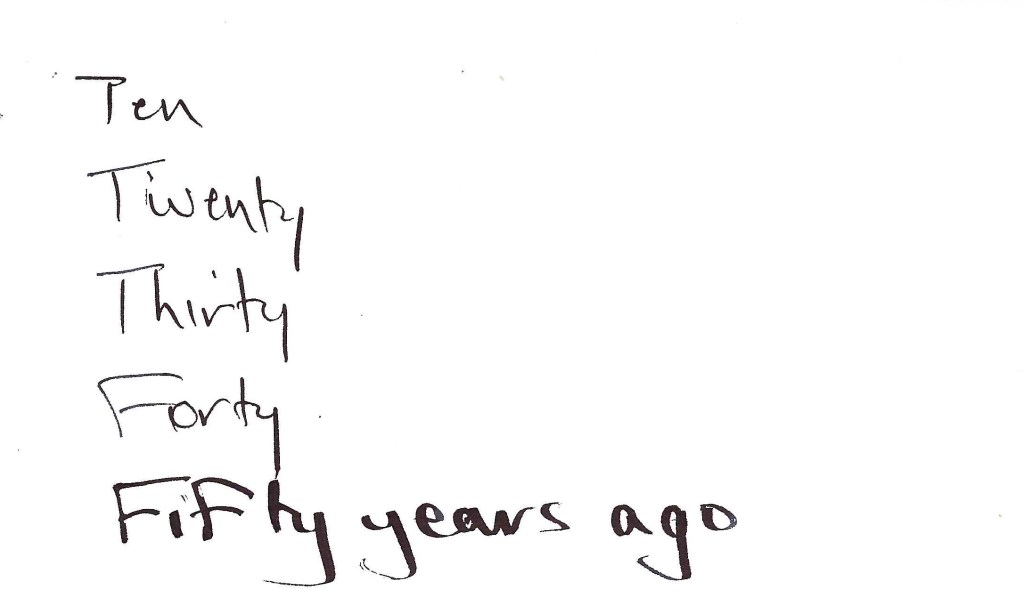 Ten
Twenty
Thirty
Forty
Fifty years ago